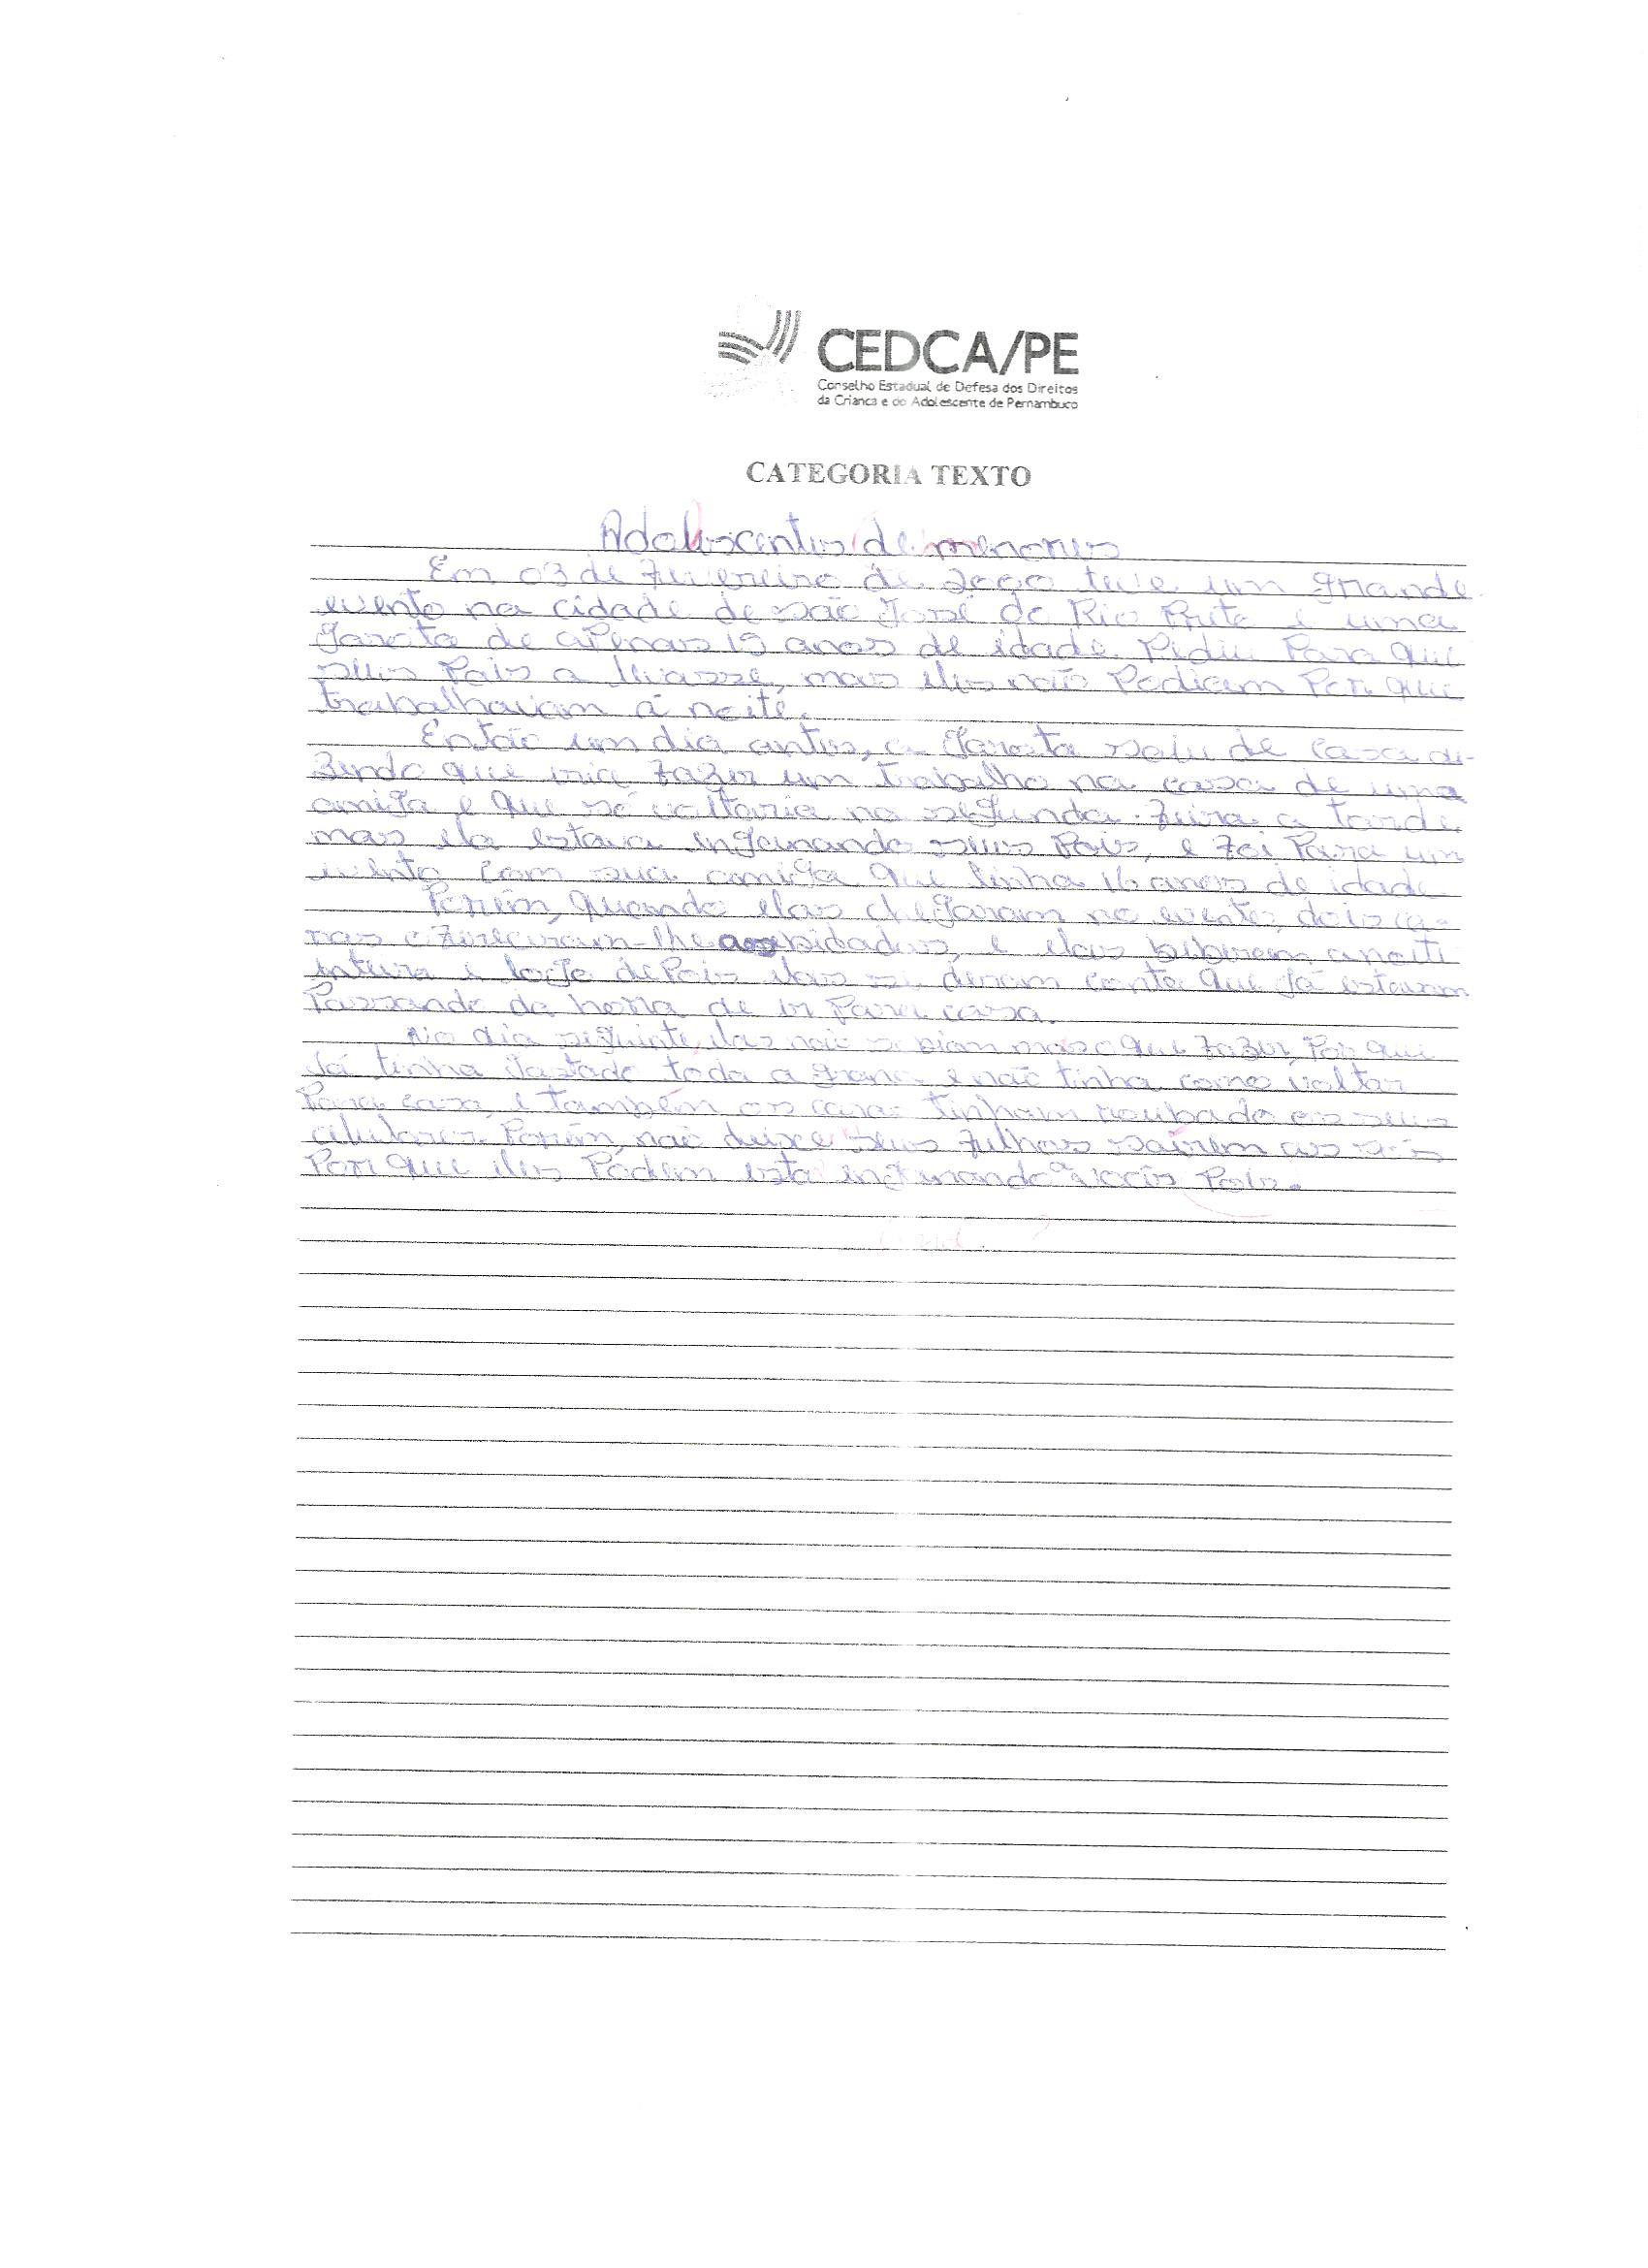 CEDCA/PE
Conselho Estadual de Defesa dos Direitos
da Criança e do Adolescente de Pernambuco
CATEGORIA TEXTO
Adolescentes de menores
Em 03 de Fevereiro de teve um grande
evento na cidade de são José do Rio Preto e uma
garota de apenas 15 anos de idade. Pediu Para que
seus Pais a levasse, mas eles não Podiam Por que
trabalhavam á noite.
Então um dia antes, a garota saiu de casa di-
zendo que iria fazer um trabalho na casa de uma
amiga e que só voltaria na segunda-feira a tarde.
mas ela estava enganando seus Pais, e foi Para um
evento com sua amiga que tinha 16 anos de idade.
Porém, quando elas chegaram no evento, dois ca-
ras ofereceram-lhe bebidas, e elas beberam a noite
inteira e logo depois elas se deram conta que já estavam
Passando da hora de ir Para casa.
No dia seguinte, elas não sabiam mas o que fazer, Por que
Já tinha gastado toda a grana e não tinha como voltar
Para casa, e também os caras tinham roubado os seus
celulares. Porém, não deixe seus filhos saírem as sós
Por que eles Podem está enganando a vocês Pais.